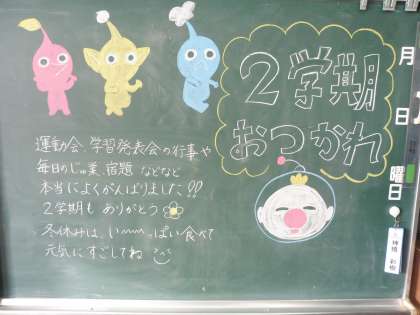 2学期
おつかれ
運動会、学習発表会の行事や
毎日のじゅ業、宿題 などなど
本当によくがんばりました!!
2学期も ありがとう
冬休みは、い〜〜っぱい食べて
元気にすごしてね
月
日
曜日